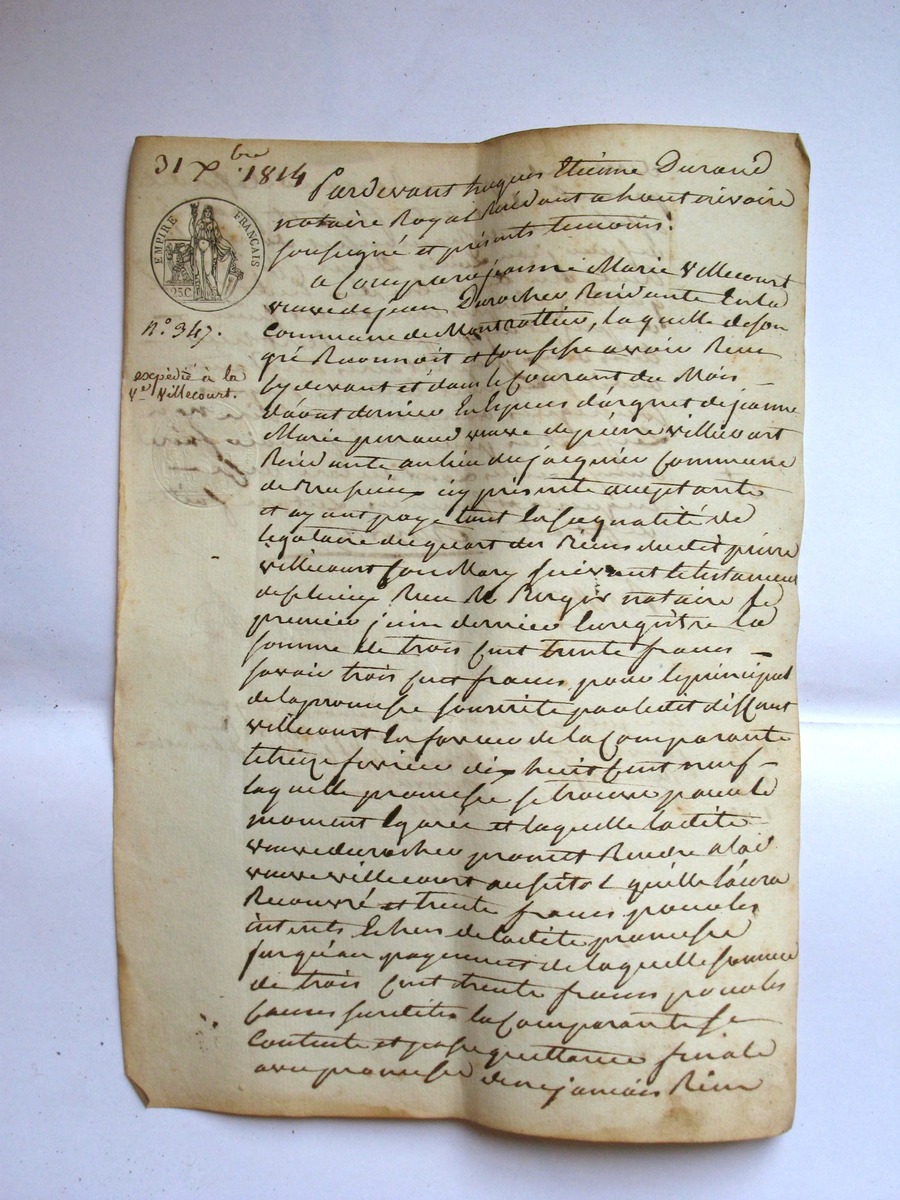 31 Xbre 1814
Pardevant hugues Etienne Durand
notaire Royal Résidant a haut rivoire
soussigné et présents temoins.
EMPIRE FRANÇAIS
25 C
a Comparu jeanne Marie Villecourt
veuve de jean Durocher Residante En la
n.º 347.
Commune de Montrottier, laquelle de son
gré Reconnoit et Confesse avoir Reçu
expédié à la
Ve Villecourt.
cy devant et dans le Courant du Mois
d'avant dernier En Espèces d'argent de jeanne
Marie veuve de pierre Villecourt
Residante au lieu du jacquier Commune
de Brussieux icy présente acceptante
et ayant payé tant En sa qualité de
legataire du quart des Biens dudit pierre
villecourt son Mary suivant le testament
Reçu Me notaire le
premier juin dernier Enregistré la
somme de trois Cent trente francs
savoir trois Cent francs pour le principal
de la promesse souscrite par ledit
villecourt En faveur de la Comparante
le treize fevrier dix huit Cent neuf
laquelle promesse se trouve pour le
moment Egarée et laquelle ladite
veuve durocher promet Rendre a lad
veuve villecourt aussitot quelle l'aura
Recouvré et trente francs pour les
interets Echus de ladite promesse
jusqu'au payement de laquelle somme
de trois Cent trente francs pour les
Causes susdites la Comparante se
Contente et passe quittance finale
avec promesse de ne jamais Rien